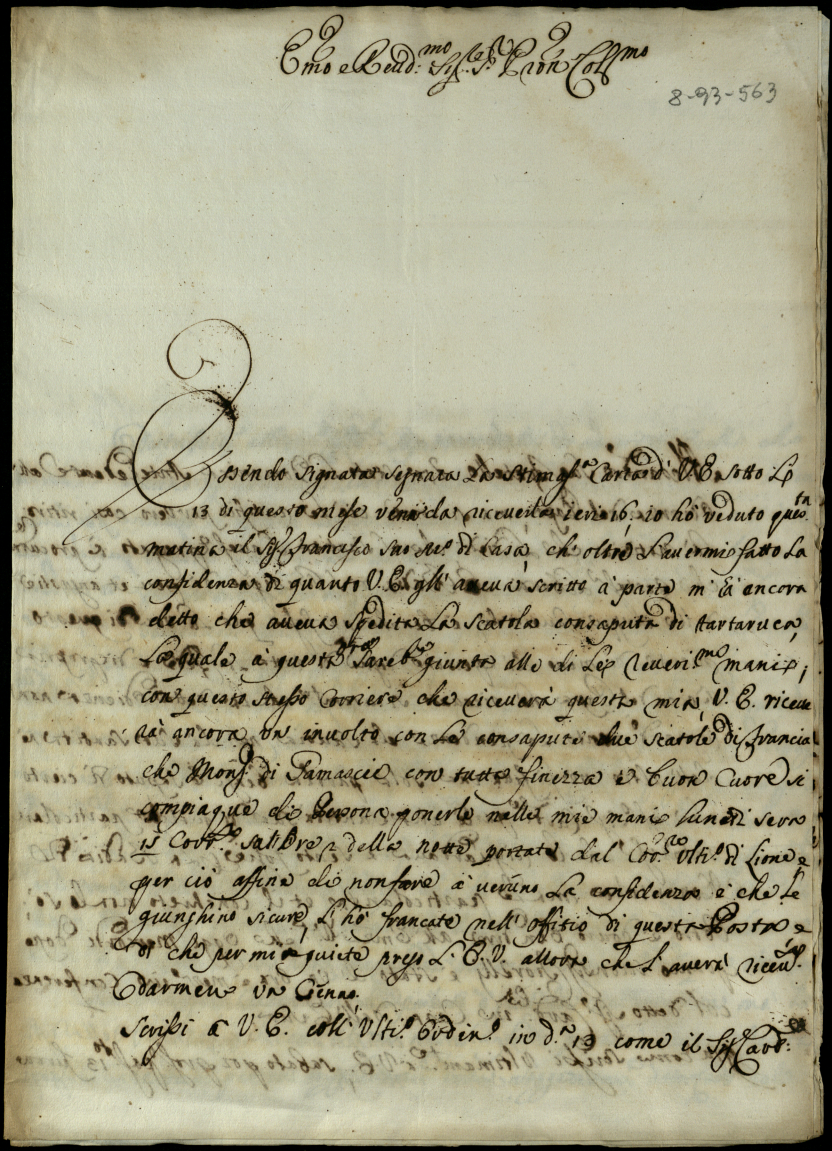 Emo e Reud:mo Sig.r Pron Colmo
8-93-563
Essendo signata segnata La stimas.a Carta d' V.E. sotto Lj
13 di questo mese venuta riceverla ieri 16, io hò veduto questa
matina il Sig.r Francesco suo di Casa, ch' oltre L'avermi fatto La
confidenza di quanto V.E. gli aveva scritto à parte m' hà ancora
detto che aveva spedita La scatola consaputa di tartaruca,
La quale à questa sarebe giunta alle di Lei reueri.mo mani;
con questo stesso Corriere che riceverà questa mia, V.E. riceve
rà ancora un involto con Le consapute due scatole di Francia
che Mons.r di Damascie con tutta finezza e buon Cuore si
compiaque di Persona ponerle nelle mie mani Lunedi sera
15 Corr.te sul'Ore 2 della notte portate dal Cor.re Ulti.o di Lione e
per ciò affine di non fare à veruno La confidenza e che le
giunghino sicure, L'hò francate nell' offitio di questa Posta e
di che per mia quiete prego L' E.V. allora che L'averà riceu.
darmene un Cenno.
Scrissi à V.E. coll' Ulti.o Ordin.o in d.o 13 come il Sig.r Card: